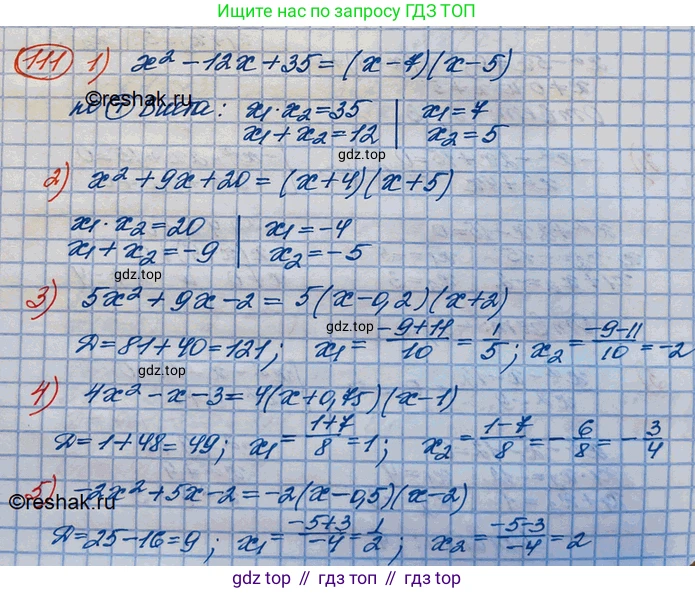 Ищите нас по запросу ГДЗ ТОП
111 1) x² - 12x + 35 = (x - 7)(x - 5)
©reshak.ru
по т Виета: x₁·x₂ = 35 | x₁ = 7
x₁ + x₂ = 12 | x₂ = 5
gdz.top
2) x² + 9x + 20 = (x + 4)(x + 5)
x₁·x₂ = 20 | x₁ = -4
x₁ + x₂ = -9 | x₂ = -5
gdz.top gdz.top
3) 5x² + 9x - 2 = 5(x - 0,2)(x + 2)
gdz.top
Д = 81 + 40 = 121; x₁ = (-9+11)/10 = 1/5; x₂ = (-9-11)/10 = -2
gdz.top
4) 4x² - x - 3 = 4(x + 0,75)(x - 1)
Д = 1 + 48 = 49; x₁ = (1+7)/8 = 1; x₂ = (1-7)/8 = -6/8 = -3/4
5) -2x² + 5x - 2 = -2(x - 0,5)(x - 2)
©reshak.ru
Д = 25 - 16 = 9; x₁ = (-5+3)/-4 = 1/2; x₂ = (-5-3)/-4 = 2
gdz.top // гдз.топ // gdz.top